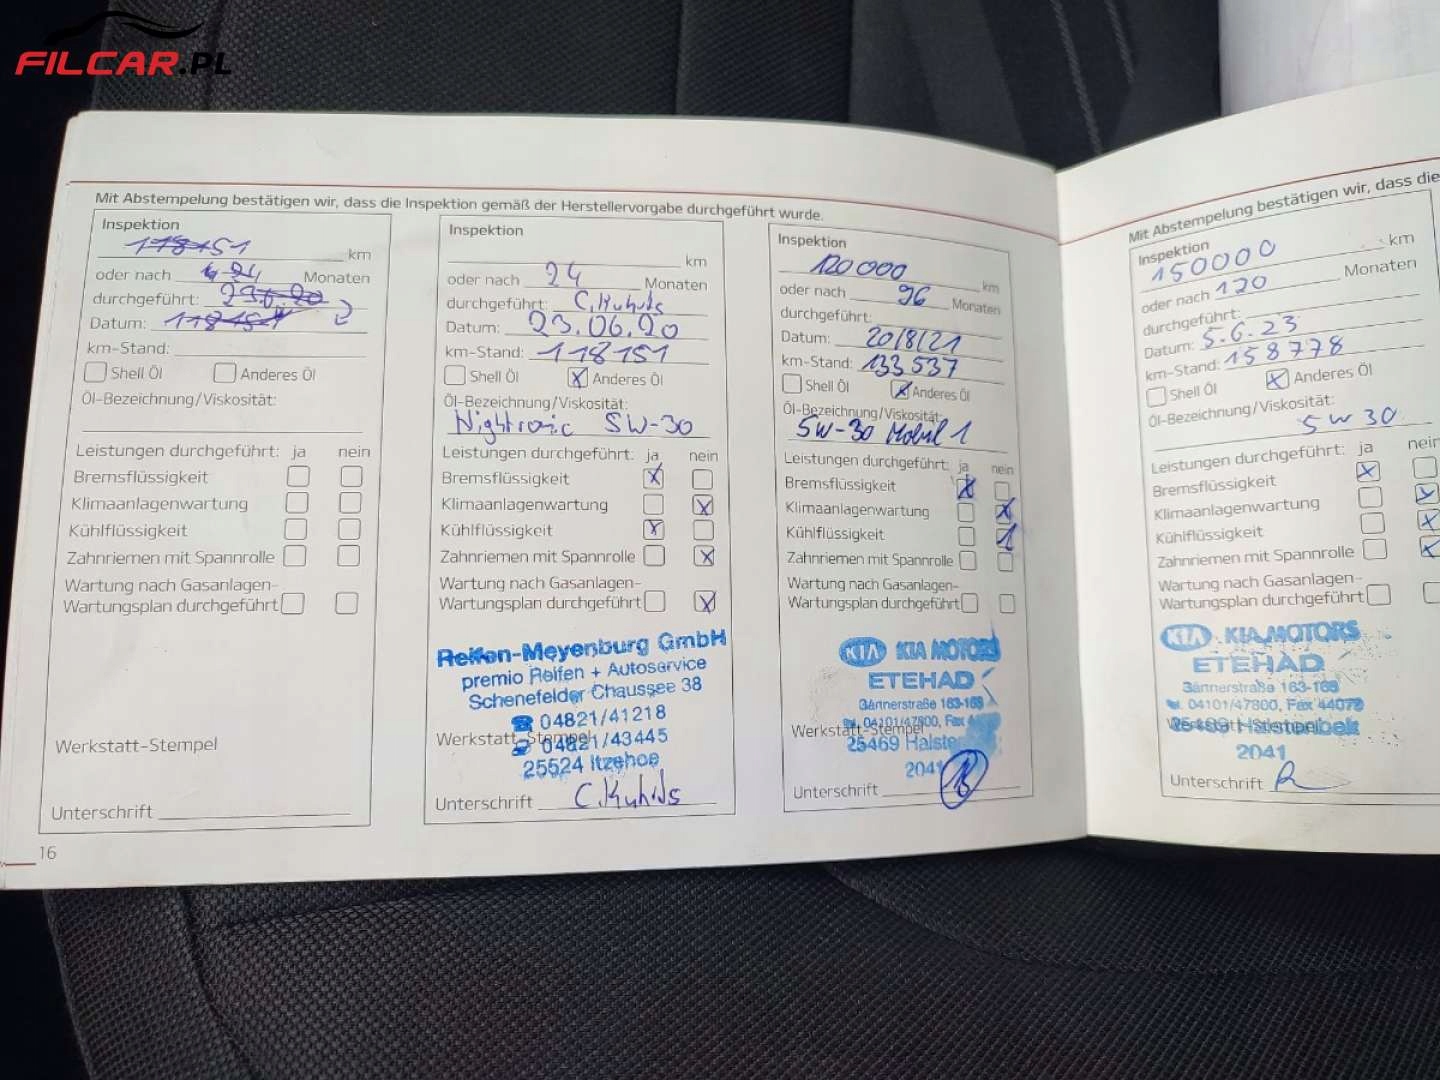 FILCAR.PL
Mit Abstempelung bestätigen wir, dass die Inspektion gemäß der Herstellervorgabe durchgeführt wurde.
Inspektion
118151 km
oder nach 24 Monaten
durchgeführt: 23.6.20
Datum: 118151
km-Stand:
Shell Öl Anderes Öl
Öl-Bezeichnung/Viskosität:
Leistungen durchgeführt: ja nein
Bremsflüssigkeit
Klimaanlagenwartung
Kühlflüssigkeit
Zahnriemen mit Spannrolle
Wartung nach Gasanlagen-
Wartungsplan durchgeführt
Werkstatt-Stempel
Unterschrift
16
Inspektion
km
oder nach 24 Monaten
durchgeführt:
Datum: 23.06.20
km-Stand: 118151
Shell Öl X Anderes Öl
Öl-Bezeichnung/Viskosität:
5W-30
Leistungen durchgeführt: ja nein
Bremsflüssigkeit X
Klimaanlagenwartung X
Kühlflüssigkeit X
Zahnriemen mit Spannrolle X
Wartung nach Gasanlagen-
Wartungsplan durchgeführt X
Reifen-Meyenburg GmbH
premio Reifen + Autoservice
Schenefelder Chaussee 38
04821/41218
Werkstatt-Stempel
04821/43445
25524 Itzehoe
Unterschrift
Inspektion
120000 km
oder nach 96 Monaten
durchgeführt:
Datum: 20/8/21
km-Stand: 133537
Shell Öl X Anderes Öl
Öl-Bezeichnung/Viskosität:
5W-30 Mobil 1
Leistungen durchgeführt: ja nein
Bremsflüssigkeit X
Klimaanlagenwartung X
Kühlflüssigkeit X
Zahnriemen mit Spannrolle
Wartung nach Gasanlagen-
Wartungsplan durchgeführt
KIA KIA MOTORS
ETEHAD
163-165
04101/47800, Fax
Werkstatt-Stempel
25469
2041
Unterschrift
Mit Abstempelung bestätigen wir, dass die
Inspektion
150000 km
oder nach 120 Monaten
durchgeführt:
Datum: 5.6.23
km-Stand: 158778
Shell Öl X Anderes Öl
Öl-Bezeichnung/Viskosität:
5W30
Leistungen durchgeführt: ja nein
Bremsflüssigkeit X
Klimaanlagenwartung X
Kühlflüssigkeit X
Zahnriemen mit Spannrolle X
Wartung nach Gasanlagen-
Wartungsplan durchgeführt
KIA KIA MOTORS
ETEHAD
163-165
04101/47800, Fax 44072
25469 Halstenbek
2041
Unterschrift